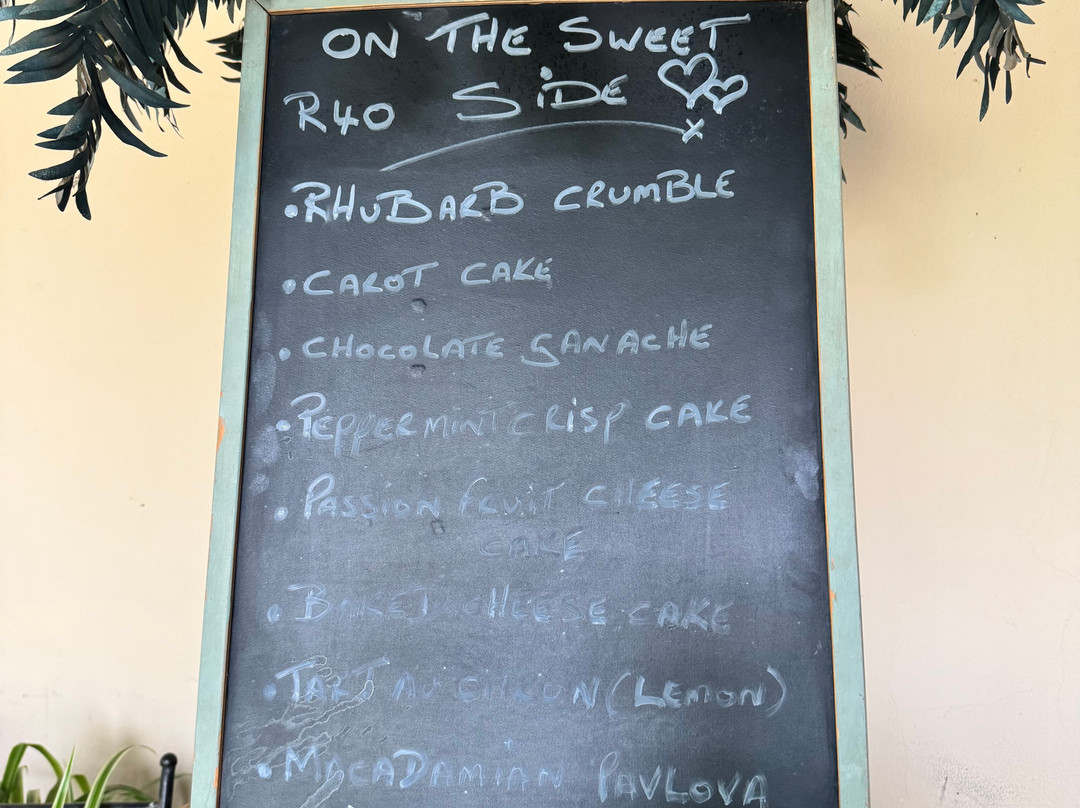 ON THE SWEET
R40 SiDE
• RHUBARB CRUMBLE
• CAROT CAKE
• CHOCOLATE GANACHE
• PEPPERMINT CRISP CAKE
• PASSION FRUIT CHEESE
CAKE
• BAKED CHEESE CAKE
• TART AU CITRON (LEMON)
• MACADAMIAN PAVLOVA